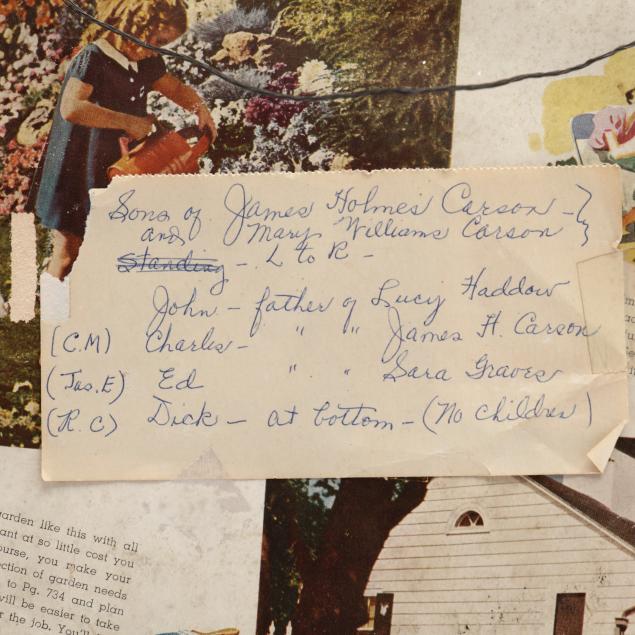 Sons of James Holmes Carson - }
and Mary Williams Carson
Standing - L to R -
John - father of Lucy Haddow
(C.M) Charles - " " James H. Carson
(Jas.E) Ed " " Sara Graves
(R.C) Dick - at bottom - (No children)
garden like this with all
ant at so little cost you
ourse, you make your
ection of garden needs
to Pg. 734 and plan
will be easier to take
r the job. You'll